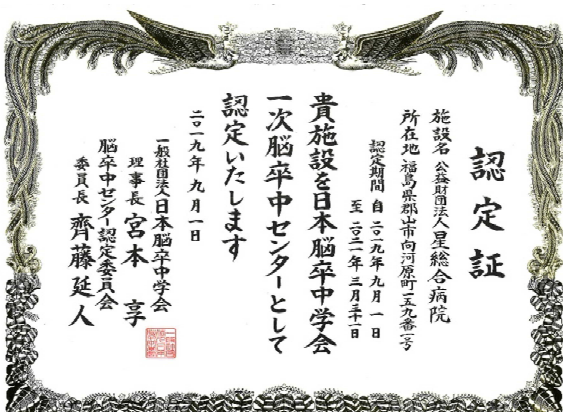 認定証
施設名 公益財団法人星総合病院
所在地 福島県郡山市向河原町一五九番一号
認定期間 自 二〇一九年九月一日
至 二〇二一年三月三十一日
貴施設を日本脳卒中学会
一次脳卒中センターとして
認定いたします
二〇一九年九月一日
一般社団法人日本脳卒中学会
理事長 宮本享
脳卒中センター認定委員会
委員長 齊藤延人